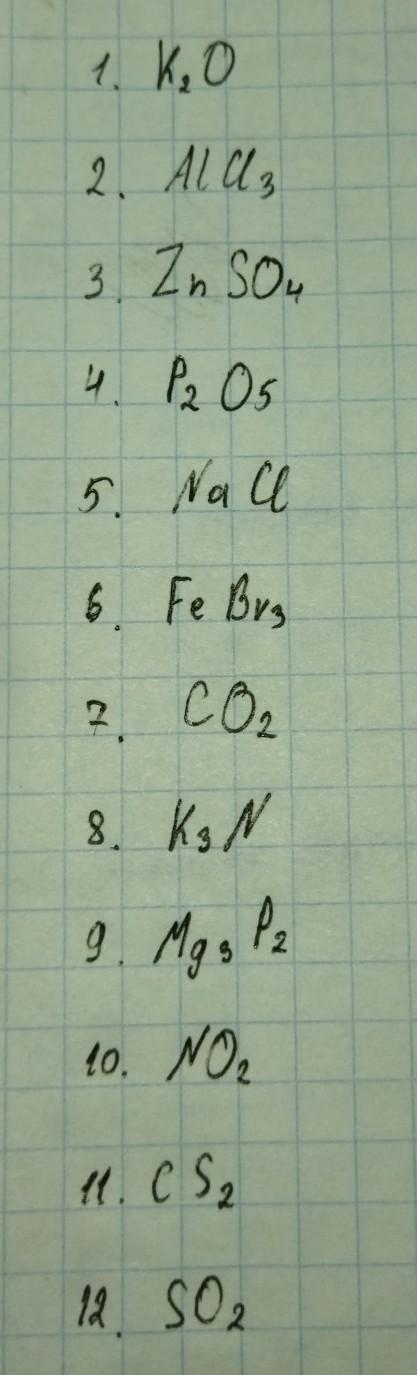 1. K₂O
2. AlCl₃
3. ZnSO₄
4. P₂O₅
5. NaCl
6. FeBr₃
7. CO₂
8. K₃N
9. Mg₃P₂
10. NO₂
11. CS₂
12. SO₂